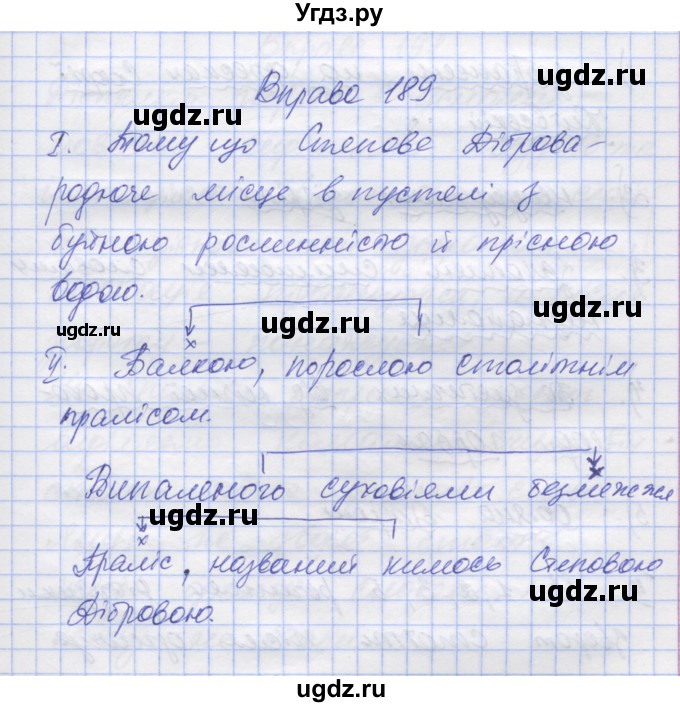 Угдз.ру
Вправа 189
I. Тому що Степове Діброва -
родюче місце в пустелі з
буйною рослинністю й прісною
водою.
II. Балкою, порослою столітнім
пралісом.
Випаленого суховіями безмежжя
Праліс, названий кимось Степовою
Дібровою.
ugdz.ru
ugdz.ru
ugdz.ru
ugdz.ru
ugdz.ru
ugdz.ru
ugdz.ru
ugdz.ru
ugdz.ru
ugdz.ru